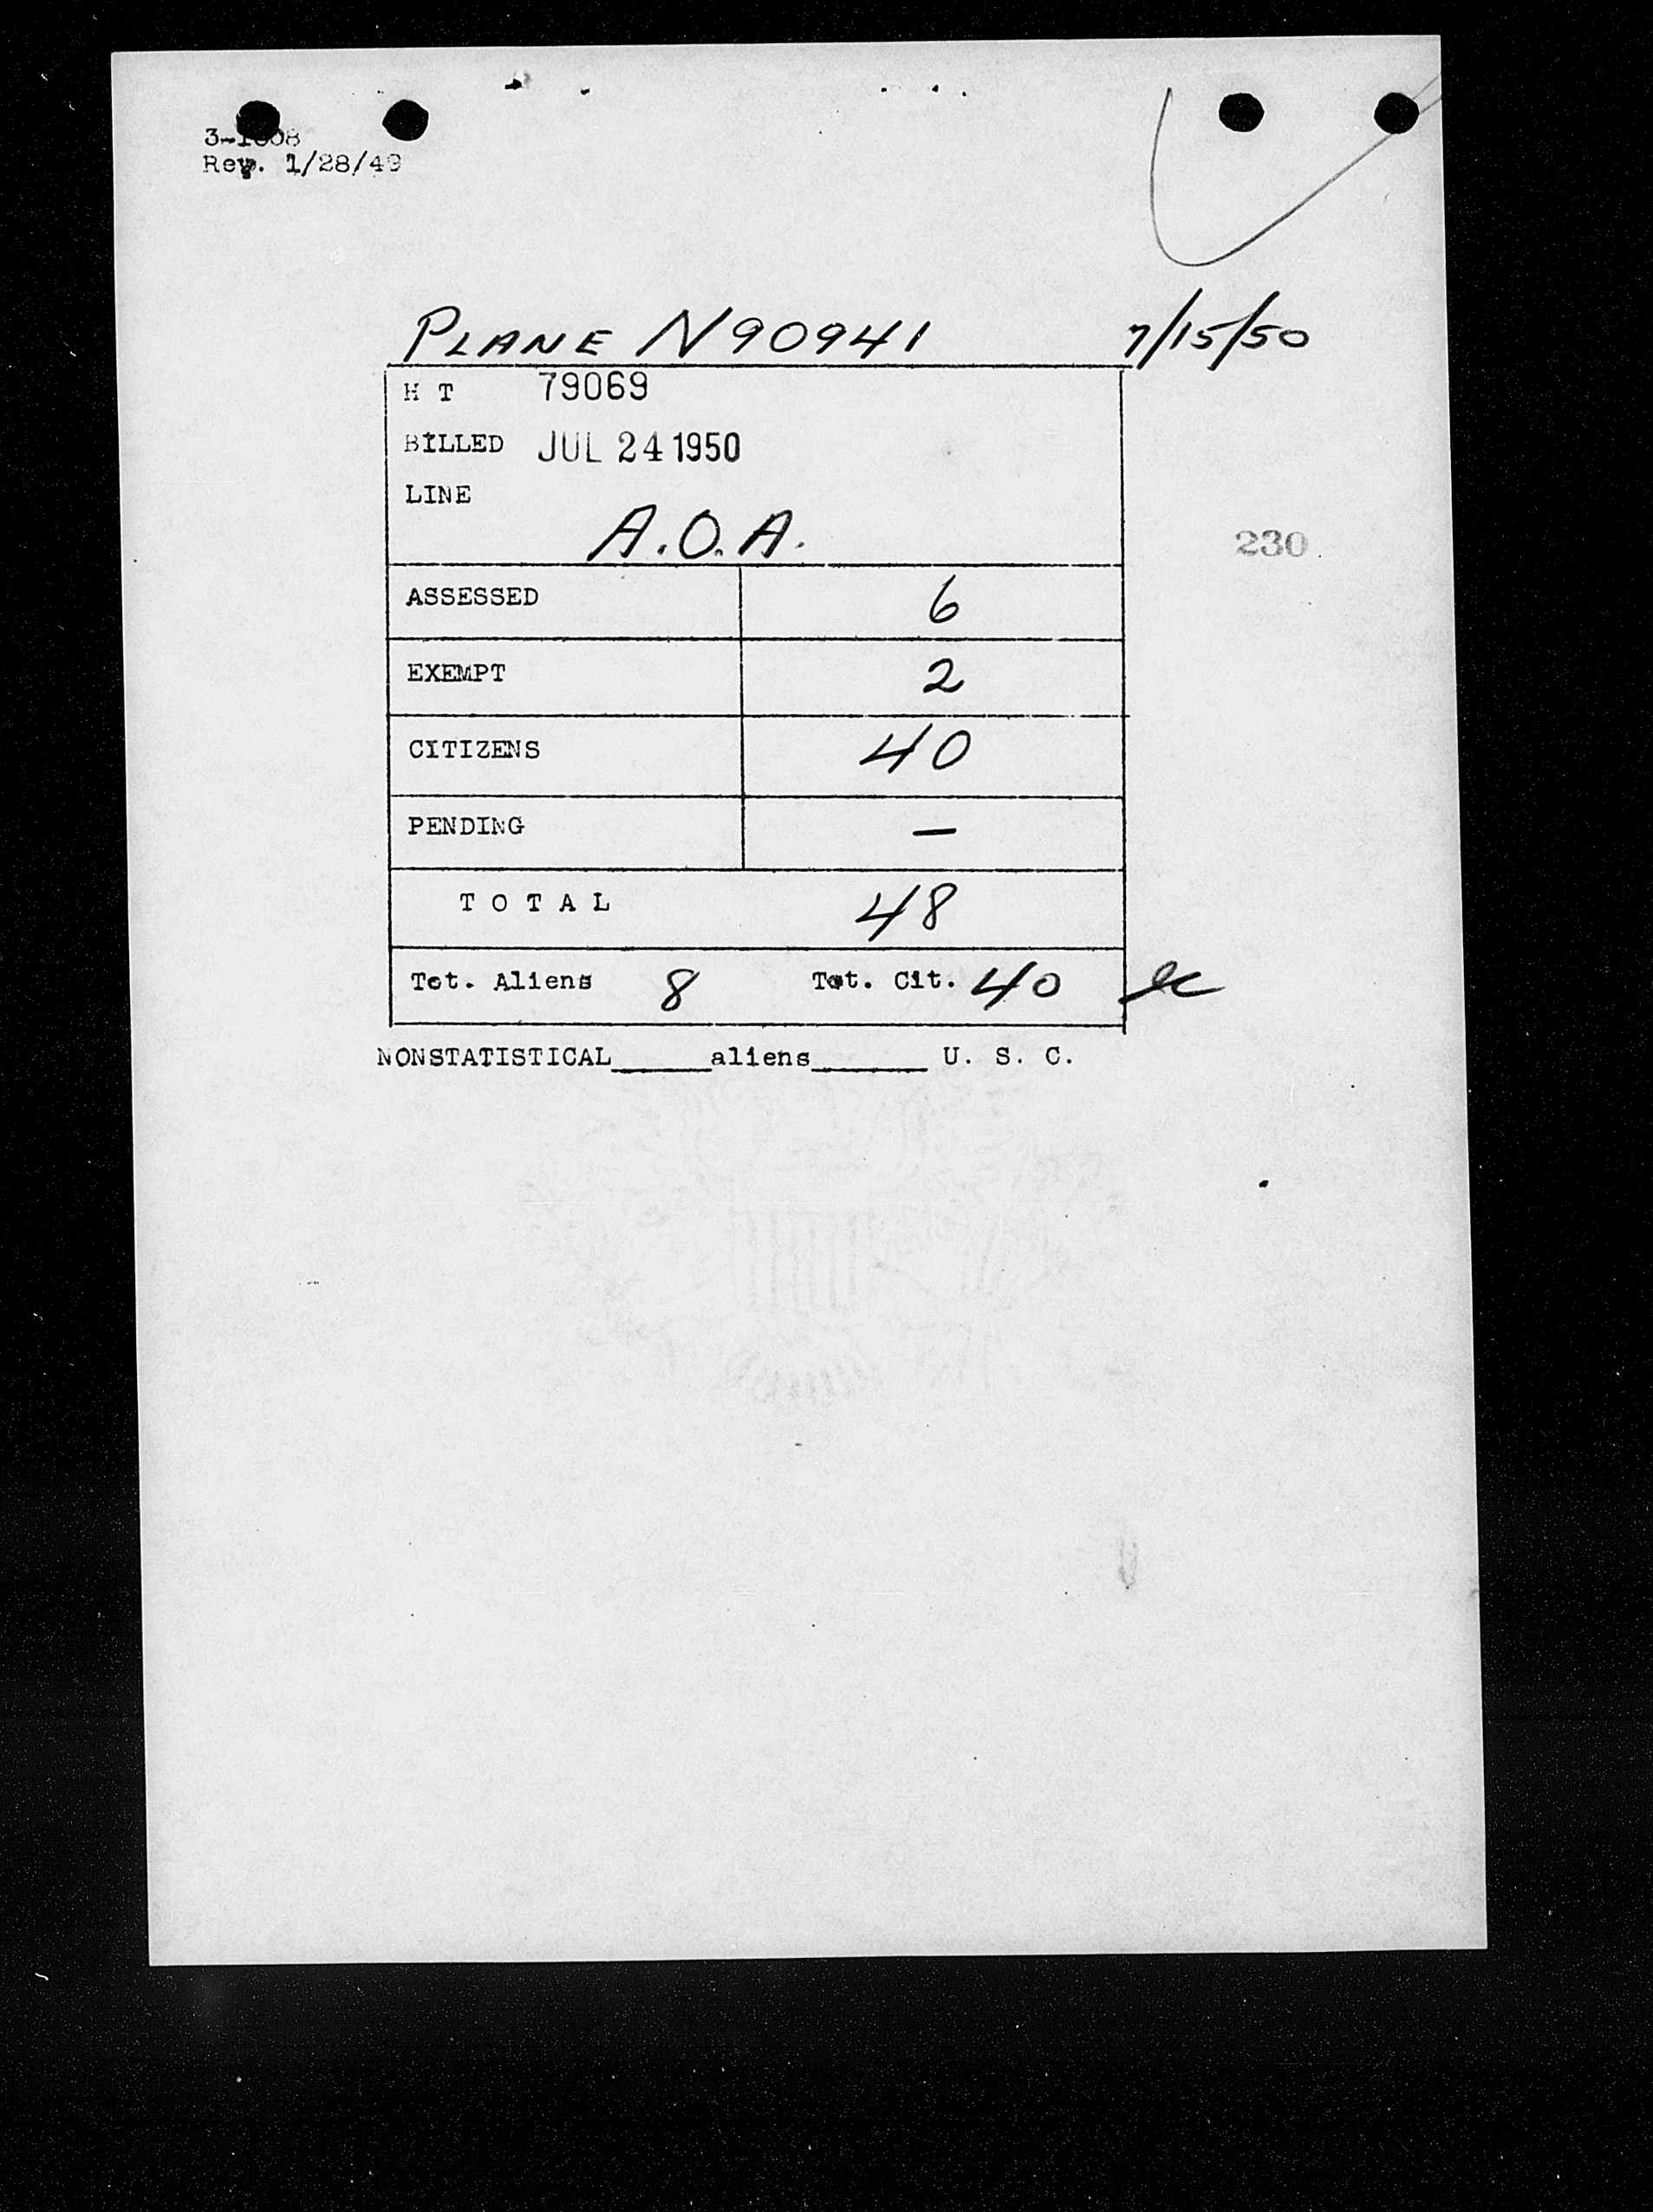 Rev. 1/28/49
PLANE N90941 7/15/50
H T 79069
BILLED JUL 24 1950
LINE
A.O.A.
230
ASSESSED 6
EXEMPT 2
CITIZENS 40
PENDING —
T O T A L 48
Tot. Aliens 8 Tot. Cit. 40
NONSTATISTICAL______aliens_______ U. S. C.